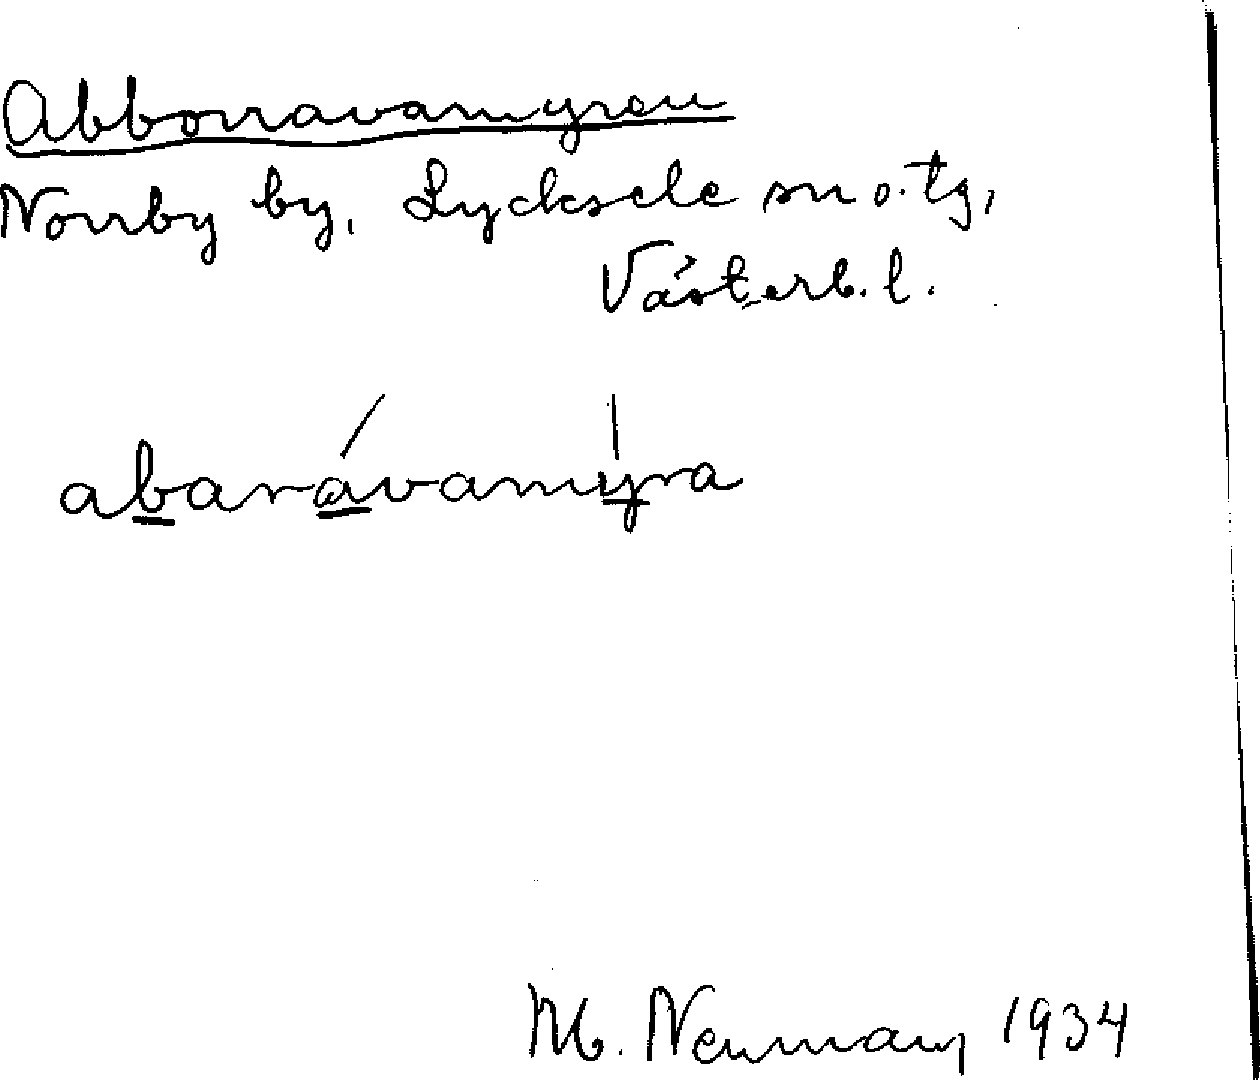 Abborravamyren
Norrby by, Lycksele sn o. tg,
Västerb. l.
abarávamyra
M. Neuman 1934